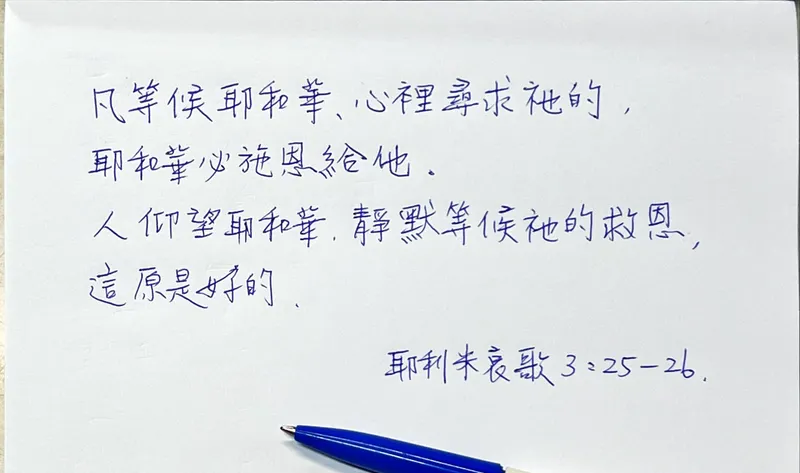 凡等候耶和華、心裡尋求祂的,
耶和華必施恩給他.
人仰望耶和華.靜默等候祂的救恩,
這原是好的.
耶利米哀歌 3:25-26.